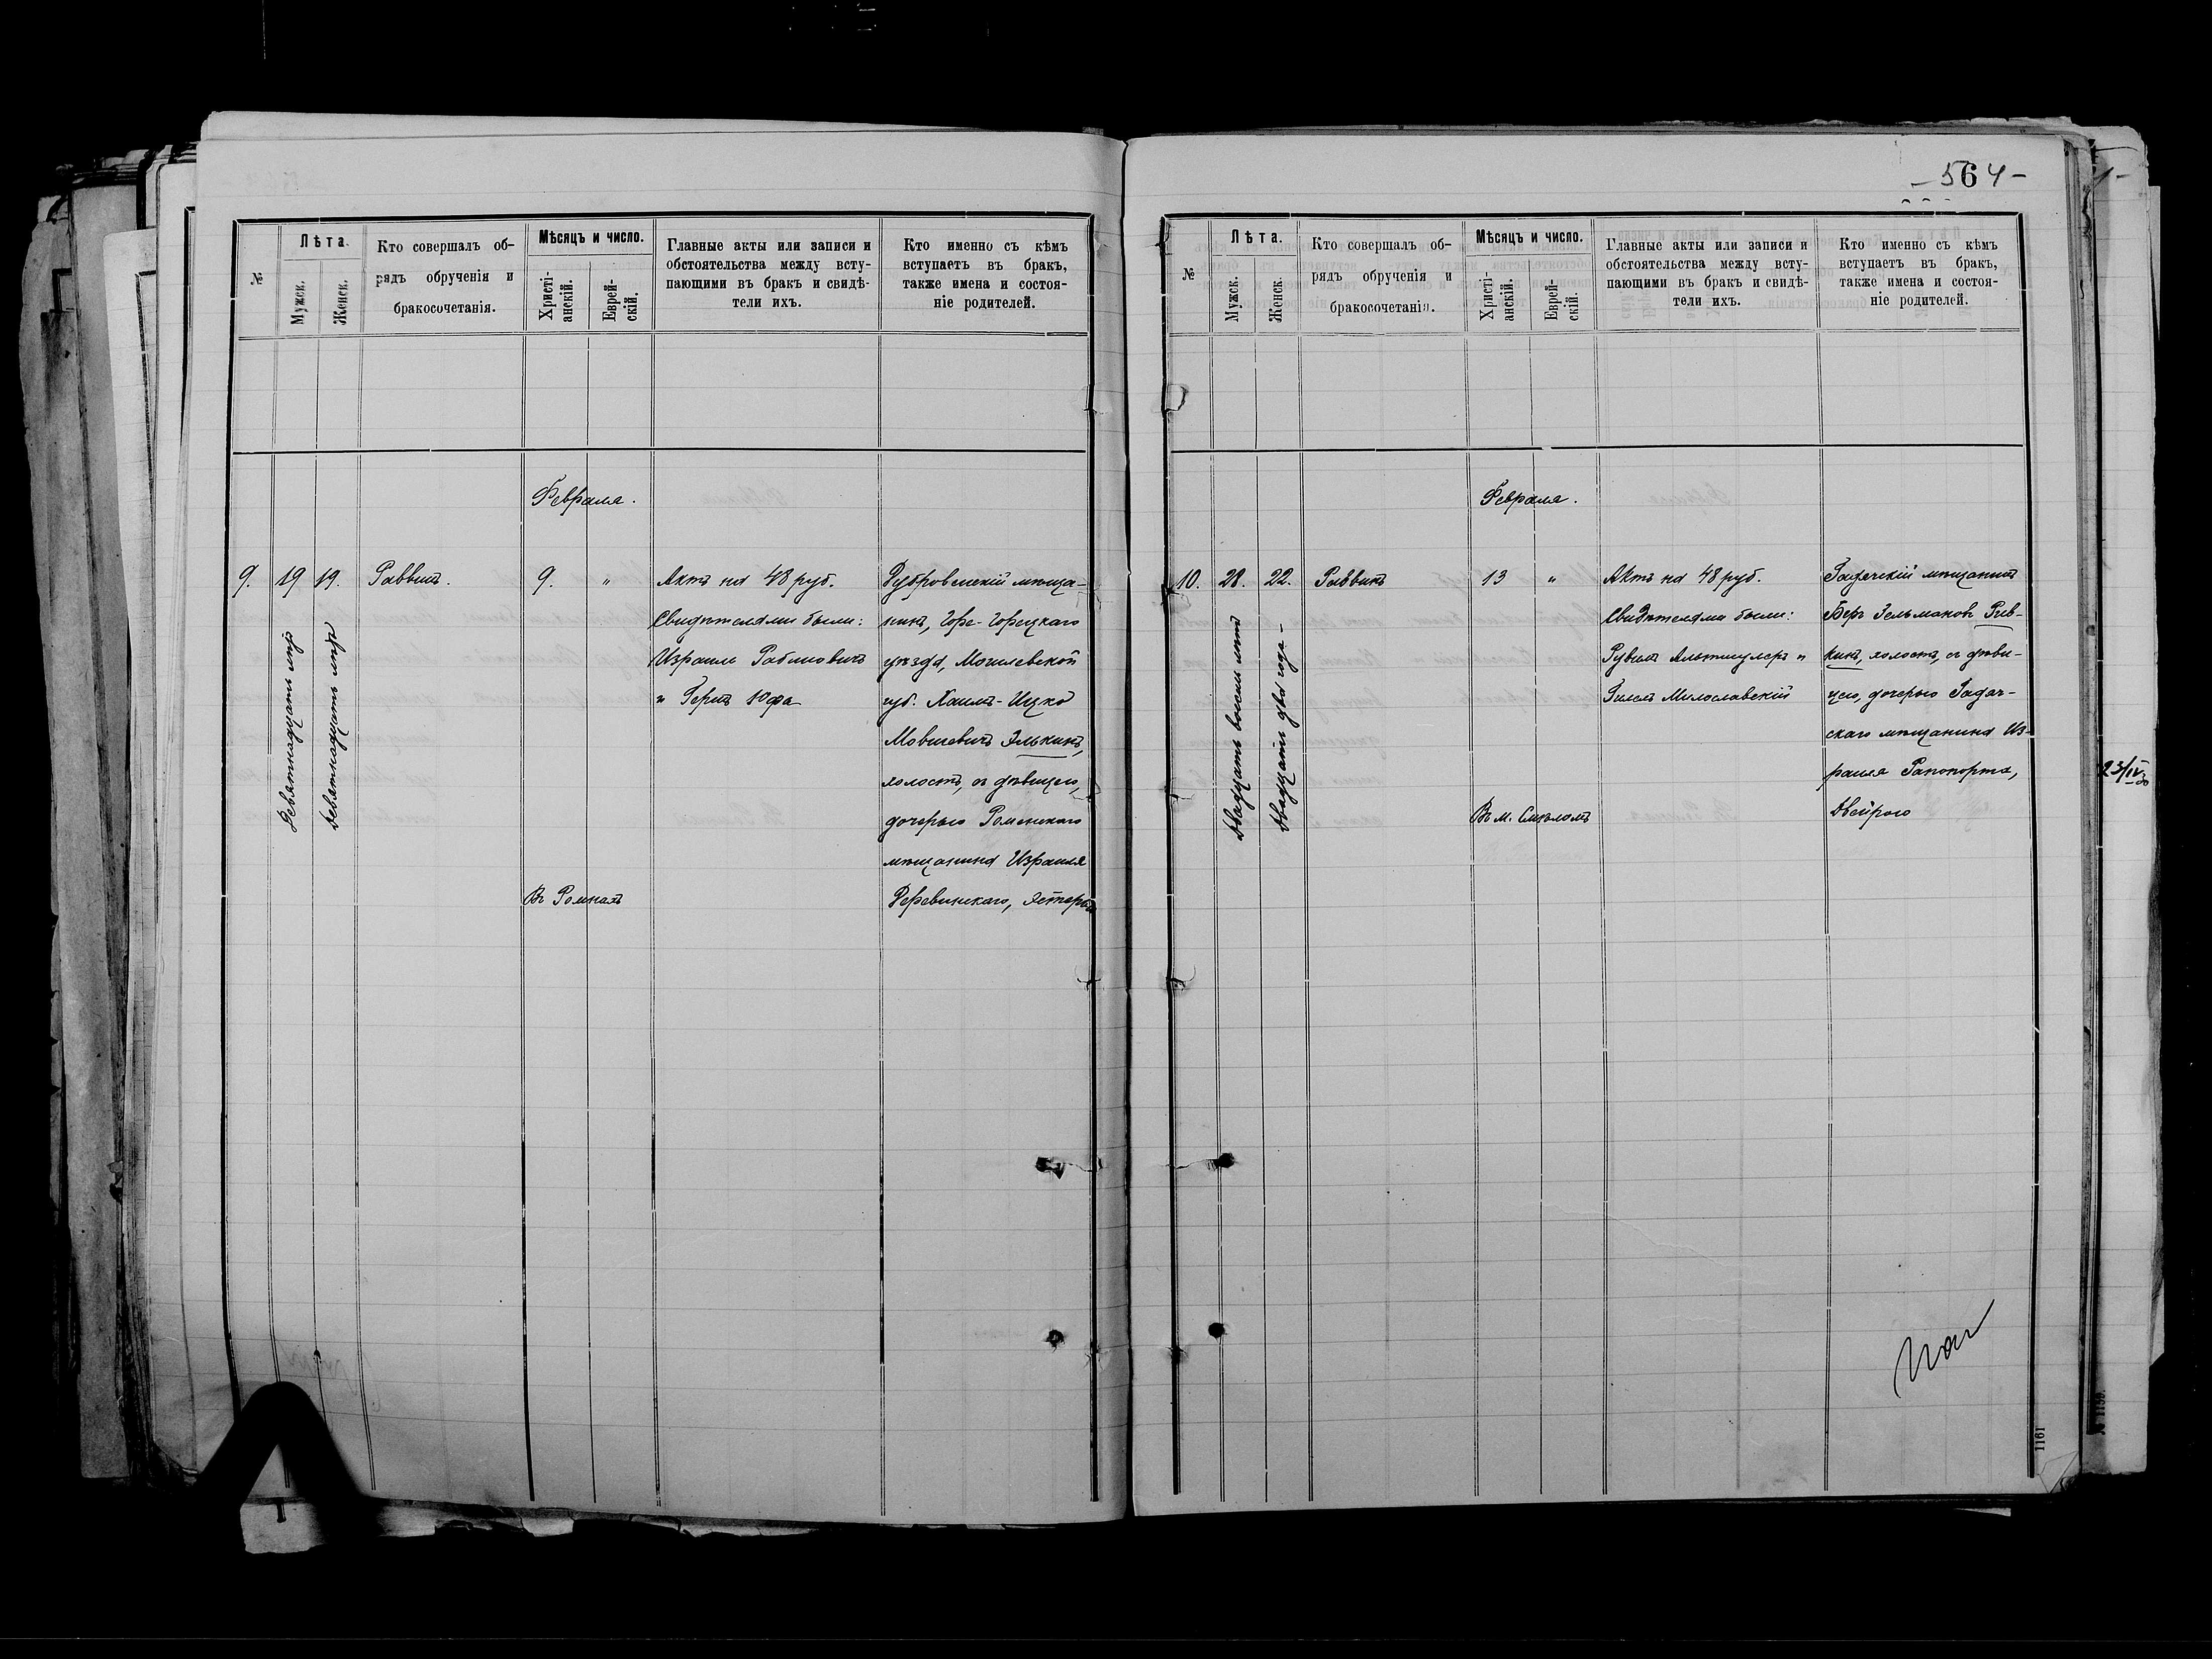 №
Лѣта.
Мужск.
Женск.
Кто совершалъ об-
рядъ обрученія и
бракосочетанія.
Мѣсяцъ и число.
Христі-
анскій.
Еврей-
скій.
Главные акты или записи и
обстоятельства между всту-
пающими въ бракъ и свидѣ-
тели ихъ.
Кто именно съ кѣмъ
вступаетъ въ бракъ,
также имена и состоя-
ніе родителей.
Февраля.
9.
19
19.
Девятнадцать лѣтъ
Девятнадцать лѣтъ
Раввинъ.
9.
"
Въ Ромнахъ
Актъ на 48 руб.
Свидѣтелями были:
Израиль Рабиновичъ
и Герцъ Юфа
Дубровенскій мѣща-
нинъ, Горе-Горецкаго
уѣзда, Могилевской
губ. Хаимъ-Ицко
Мовшевичъ Элькинъ,
холостъ, съ дѣвицею,
дочерью Роменскаго
мѣщанина Израиля
Деревинскаго, Эстерью
- 564 -
№
Лѣта.
Мужск.
Женск.
Кто совершалъ об-
рядъ обрученія и
бракосочетанія.
Мѣсяцъ и число.
Христі-
анскій.
Еврей-
скій.
Главные акты или записи и
обстоятельства между всту-
пающими въ бракъ и свидѣ-
тели ихъ.
Кто именно съ кѣмъ
вступаетъ въ бракъ,
также имена и состоя-
ніе родителей.
Февраля.
10.
28.
22.
Двадцать восемь лѣтъ
Двадцать два года -
Раввинъ
13
"
Въ м. Смѣломъ
Актъ на 48 руб.
Свидѣтелями были:
Рувимъ Альтшулеръ и
Милославскій
Гадячскій мѣщанинъ
Беръ Зельмановъ Рив-
кинъ, холостъ, съ дѣви-
цею, дочерью Гадяч-
скаго мѣщанина Из-
раиля Рапопорта,
Двейрою
1161